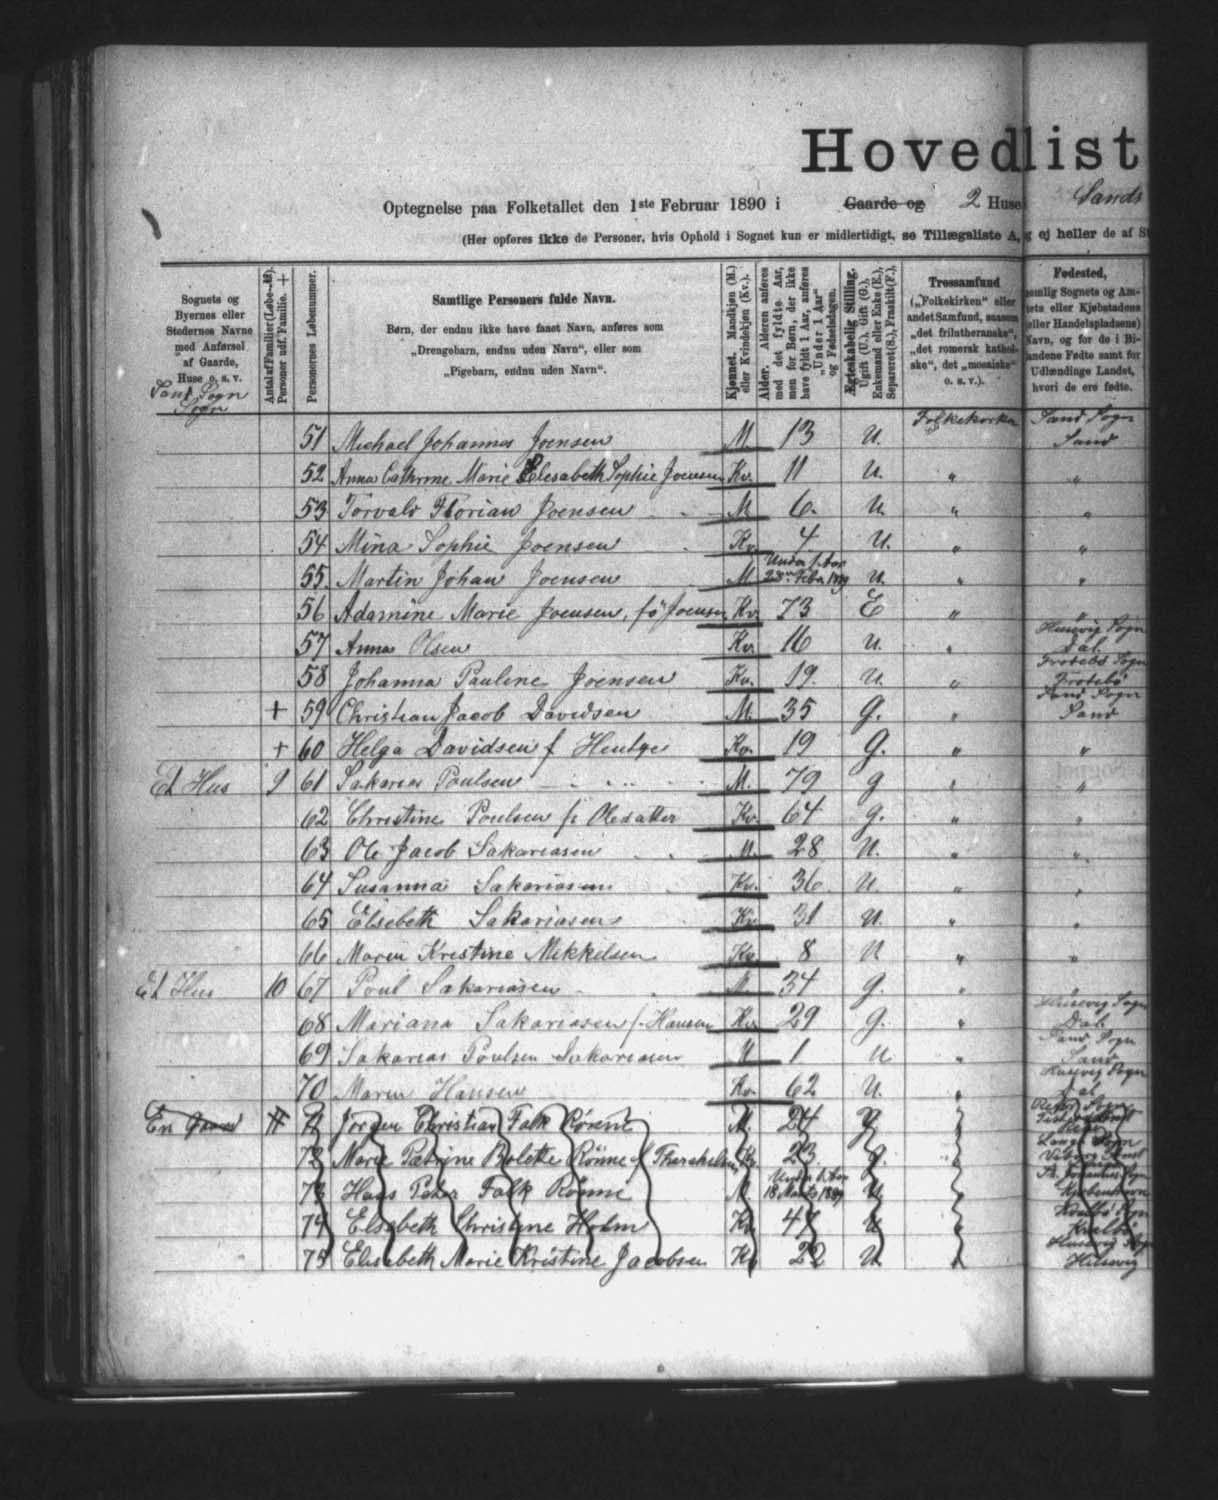 Hovedlist
Optegnelse paa Folketallet den 1ste Februar 1890 i Gaarde og 2 Huse Sands
(Her opføres ikke de Personer, hvis Ophold i Sognet kun er midlertidigt, se Tillægsliste A, g ej heller de af St
Sognets og Byernes eller Stedernes Navne med Anførsel af Gaarde, Huse o. s. v.
Antal af Familier (Løbe-№). Personer udf. Familie. +
Personernes Løbenummer.
Samtlige Personers fulde Navn.
Børn, der endnu ikke have faaet Navn, anføres som
„Drengebarn, endnu uden Navn“, eller som
„Pigebarn, endnu uden Navn“.
Kjønnet. Mandkjøn (M.) eller Kvindekjøn (Kv.).
Alder. Alderen anføres med det fyldte Aar, men for Børn, der ikke have fyldt 1 Aar, anføres „Under 1 Aar“ og Fødselsdagen.
Ægteskabelig Stilling. Ugift (U.), Gift (G.), Enkemand eller Enke (E.), Separeret (S.), Fraskilt (F.).
Trossamfund („Folkekirken“ eller andet Samfund, saasom „det frilutheranske“, „det romersk katholske“, det „mosaiske“ o. s. v.).
Fødested, emlig Sognets og Am- tets eller Kjøbstadens eller Handelspladsens) Navn, og for de i Bi- andene Fødte samt for Udlændinge Landet, hvori de ere fødte.
Sand Sogn
Sogn
51 Michael Johannes Joensen M. 13 U. Folkekirken Sand Sogn Sand
52 Anna Cathrine Marie Elesabeth Sophie Joensen Kv. 11 U. „ „
53 Torvald Florian Joensen M 6. U. „ „
54 Mina Sophie Joensen Kv. 4. U. „ „
55. Martin Johan Joensen M Under 1. Aar 28 Febr. 1889 U. „ „
56 Adamine Marie Joensen, fø Joensen Kv. 73 E „ „
57 Anna Olsen Kv. 16 U. „ Husevig Sogn Dal
58 Johanna Pauline Joensen Kv. 19. U. „ Sogn
+ 59 Christian Jacob Davidsen M. 35 g. „ Sand Sogn Sand
+ 60 Helga Davidsen f Hentze Kv. 19 g. „ „
Et Hus 9 61 Sakarias Poulsen M. 79 g „ „
62 Christine Poulsen f. Olesatter Kv. 64 g. „ „
63 Ole Jacob Sakariasen M. 28 U. „ „
64 Susanna Sakariasen Kv. 36. U. „ „
65 Elsebeth Sakariasen Kv. 31 U. „ „
66 Maren Kristine Mikkelsen Kv. 8 U „ „
Et Hus 10 67 Poul Sakariasen M 34 g. „ „
68 Mariana Sakariasen f. Hansen Kv. 29 g. „ Husevig Sogn Dal.
69 Sakarias Poulsen Sakariasen M 1 U „ Sand Sogn Sand
70 Maren Hansen Kv. 62 U. „ Husevig Sogn Dal
En 11 71 Jørgen Christian Falk Rønne M. 24 g. „
72 Marie Petrine Bolette Rönne f Kv. 23 g. „
73 Hans Peter Falk Rönne M. Under 1. Aar 18 Marts 1889 U. „ Kjøbenhavn
74 Elsebeth Christine Holm Kv. 47 U „ Kvalbø Sogn Kvalbø
75 Elisabeth Marie Kristine Jacobsen Kv 22 U. „ Husevig Sogn Husevig